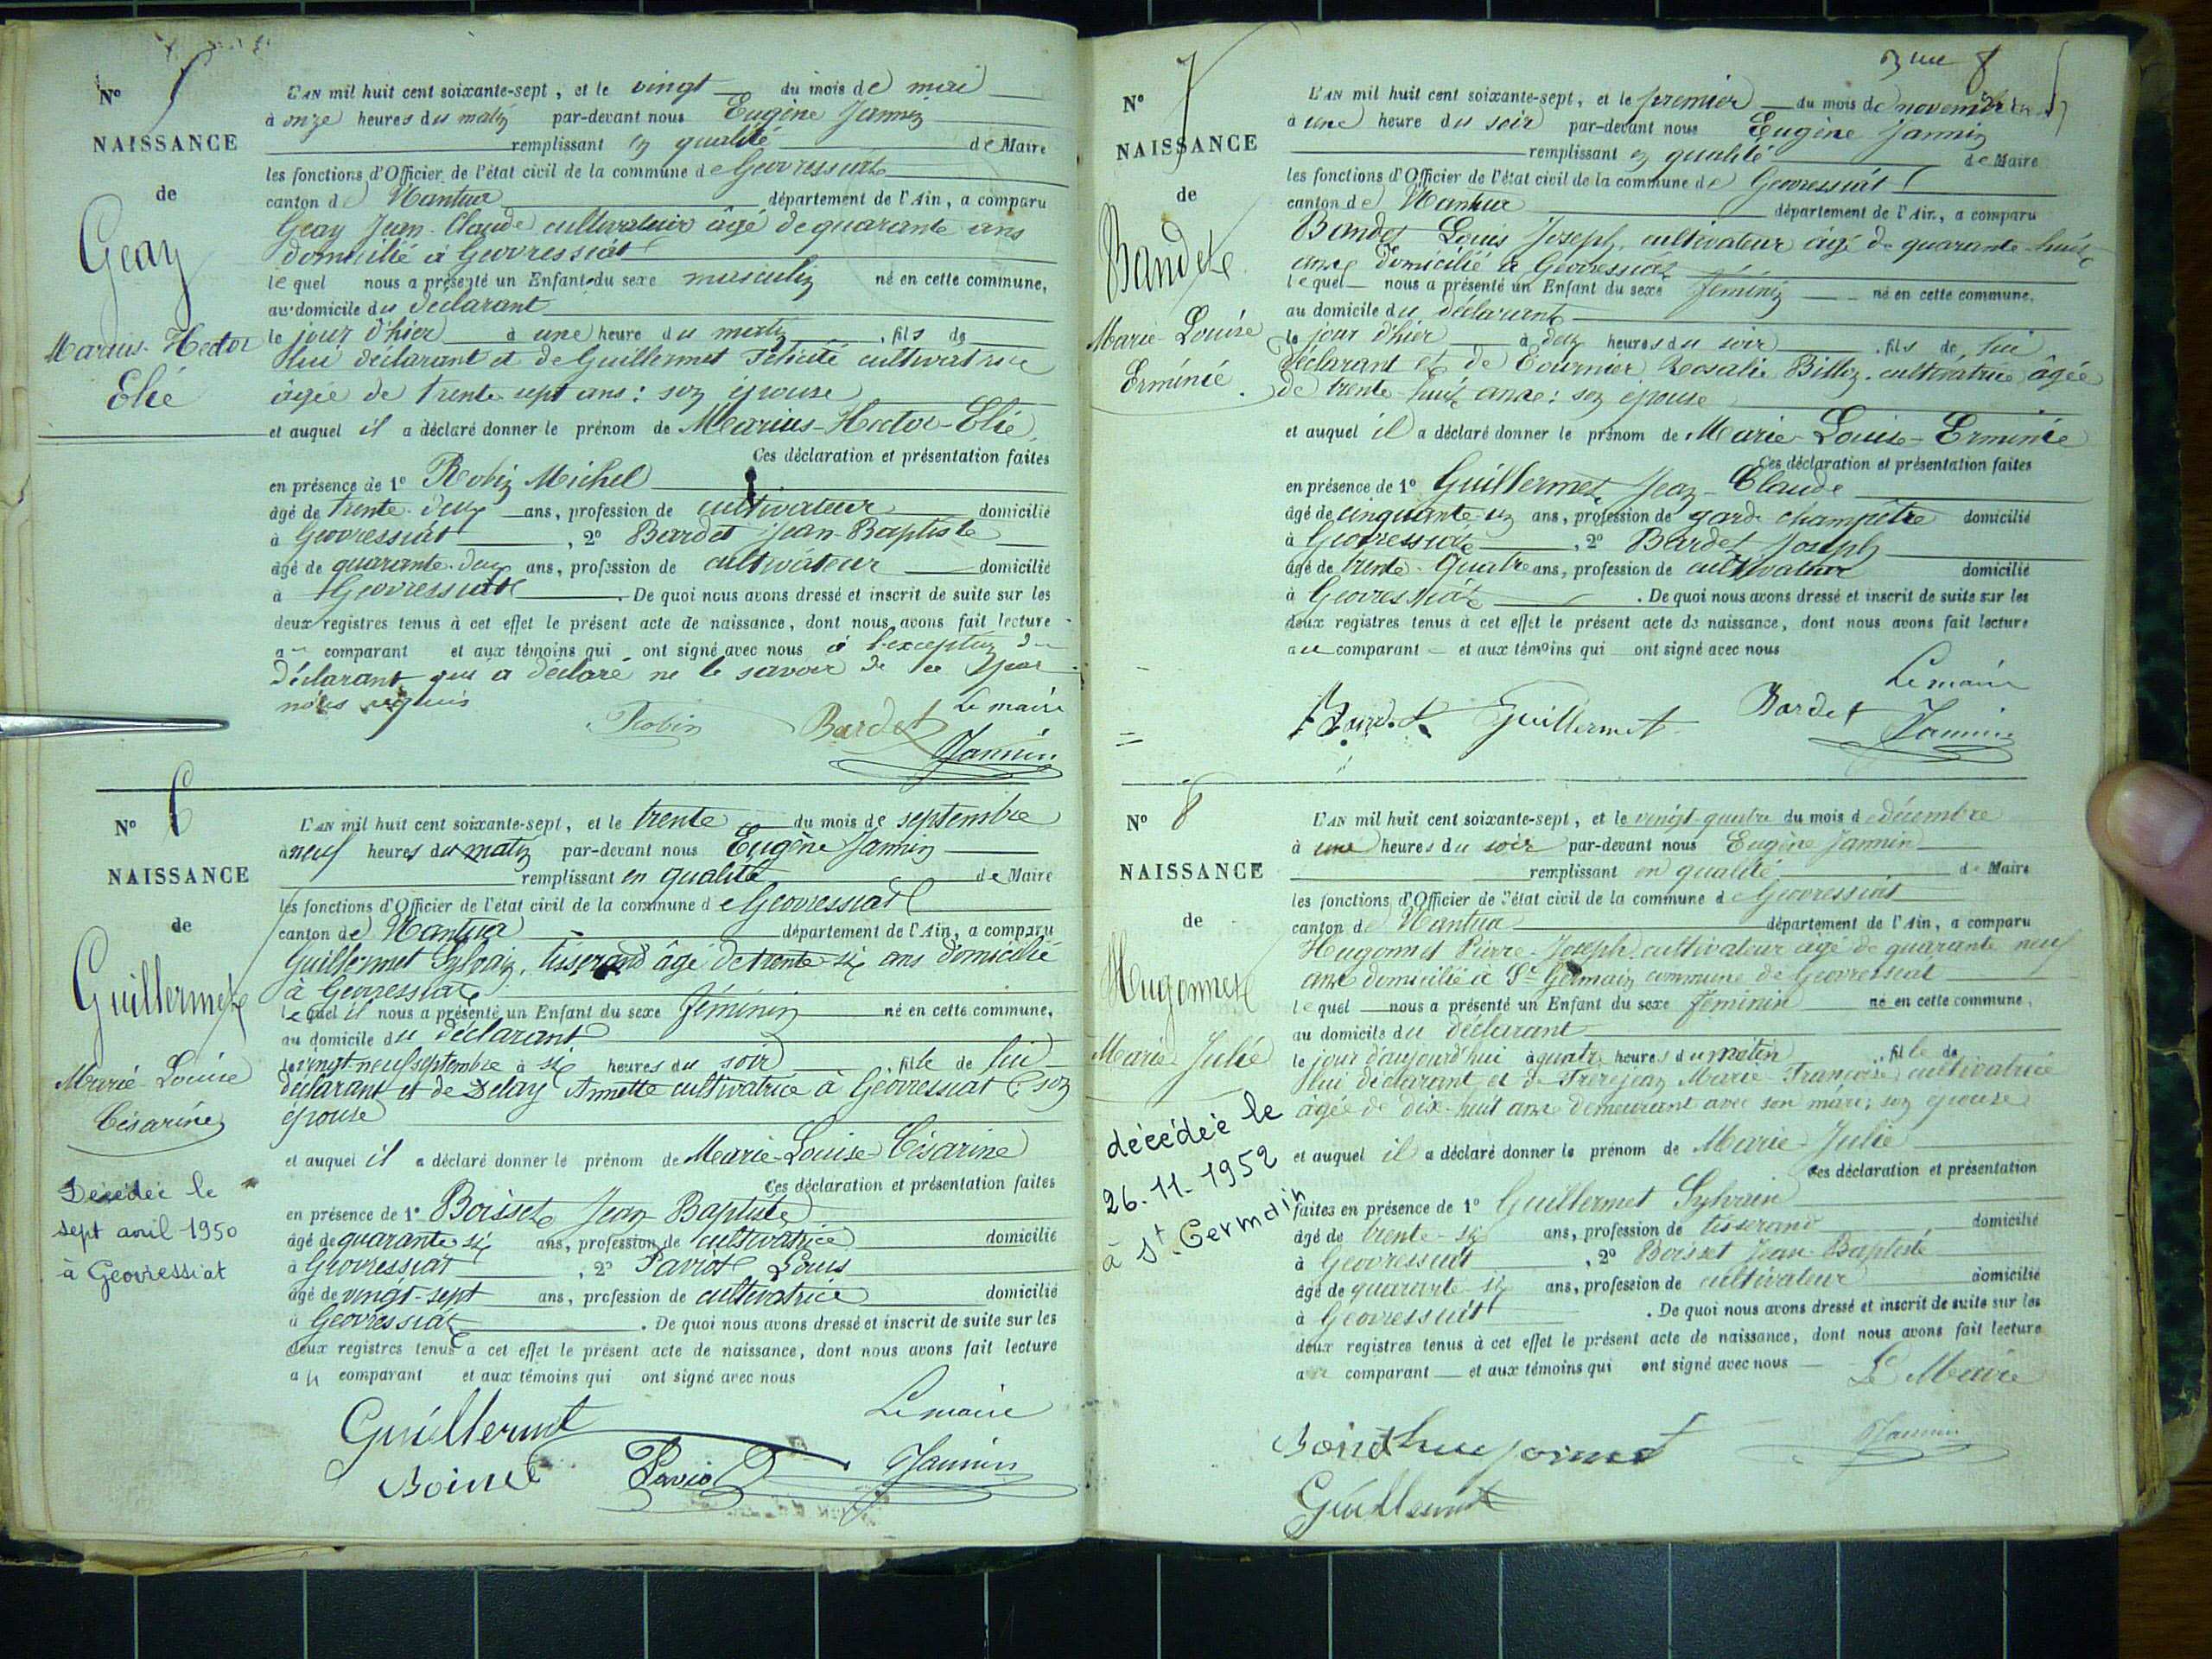 N° 5
NAISSANCE
de
Geay
Marius-Hector
Elie
L'AN mil huit cent soixante-sept, et le vingt du mois de mai
à onze heures du matin par-devant nous Eugène Jannin
remplissant en qualité de Maire
les fonctions d'Officier de l'état civil de la commune de Geovressiat
canton de Nantua département de l'Ain, a comparu
Geay Jean-Claude cultivateur âgé de quarante ans
domicilié à Geovressiat
lequel nous a présenté un Enfant du sexe masculin né en cette commune,
au domicile du déclarant
le jour d'hier à une heure du matin, fils de
lui déclarant et de Guillermet Félicité cultivatrice
âgée de trente sept ans: son épouse
et auquel il a déclaré donner le prénom de Marius-Hector-Elie
Ces déclaration et présentation faites
en présence de 1° Robin Michel
âgé de trente-deux ans, profession de cultivateur domicilié
à Geovressiat, 2° Bardet Jean-Baptiste
âgé de quarante-deux ans, profession de cultivateur domicilié
à Geovressiat. De quoi nous avons dressé et inscrit de suite sur les
deux registres tenus à cet effet le présent acte de naissance, dont nous avons fait lecture
au comparant et aux témoins qui ont signé avec nous à l'exception du
déclarant qui a déclaré ne le savoir de ce par
nous requis
Le maire
Robin Bardet
Jannin
N° 6
NAISSANCE
de
Guillermet
Marie-Louise
Césarine
Décédée le
sept avril 1950
à Geovressiat
L'AN mil huit cent soixante-sept, et le trente du mois de septembre
à neuf heures du matin par-devant nous Eugène Jannin
remplissant en qualité de Maire
les fonctions d'Officier de l'état civil de la commune de Geovressiat
canton de Nantua département de l'Ain, a comparu
Guillermet Sylvain, tisserand âgé de trente-six ans domicilié
à Geovressiat
lequel il nous a présenté un Enfant du sexe féminin né en cette commune,
au domicile du déclarant
le vingt-neuf septembre à six heures du soir, fille de lui
déclarant et de Delay Annette cultivatrice à Geovressiat son
épouse
et auquel il a déclaré donner le prénom de Marie-Louise-Césarine
Ces déclaration et présentation faites
en présence de 1° Boisset Jean Baptiste
âgé de quarante six ans, profession de cultivatrice domicilié
à Geovressiat, 2° Paviot Louis
âgé de vingt-sept ans, profession de cultivatrice domicilié
à Geovressiat. De quoi nous avons dressé et inscrit de suite sur les
deux registres tenus à cet effet le présent acte de naissance, dont nous avons fait lecture
au comparant et aux témoins qui ont signé avec nous
Le maire
Guillermet
Paviot Jannin
N° 7
NAISSANCE
de
Bandet
Marie-Louise
Erminie
L'AN mil huit cent soixante-sept, et le premier du mois de novembre
à une heure du soir par-devant nous Eugène Jannin
remplissant en qualité de Maire
les fonctions d'Officier de l'état civil de la commune de Geovressiat
canton de Nantua département de l'Ain, a comparu
Bandet Louis Joseph, cultivateur âgé de quarante-huit
ans domicilié à Geovressiat
lequel nous a présenté un Enfant du sexe féminin né en cette commune,
au domicile du déclarant
le jour d'hier à deux heures du soir, fils de lui
déclarant et de Tournier Rosalie Billoz, cultivatrice âgée
de trente-huit ans: son épouse
et auquel il a déclaré donner le prénom de Marie-Louise-Erminie
Ces déclaration et présentation faites
en présence de 1° Guillermet Jean-Claude
âgé de cinquante-un ans, profession de garde champêtre domicilié
à Geovressiat, 2° Bardet Joseph
âgé de trente-quatre ans, profession de cultivateur domicilié
à Geovressiat. De quoi nous avons dressé et inscrit de suite sur les
deux registres tenus à cet effet le présent acte de naissance, dont nous avons fait lecture
au comparant et aux témoins qui ont signé avec nous
Le maire
Guillermet Bardet
Jannin
N° 8
NAISSANCE
de
Hugonnet
Marie-Julie
décédée le
26-11-1952
à St-Germain
L'AN mil huit cent soixante-sept, et le vingt-quatre du mois de décembre
à une heures du soir par-devant nous Eugène Jannin
remplissant en qualité de Maire
les fonctions d'Officier de l'état civil de la commune de Geovressiat
canton de Nantua département de l'Ain, a comparu
Hugonnet Pierre-Joseph cultivateur âgé de quarante neuf
ans domicilié à St Germain commune de Geovressiat
lequel nous a présenté un Enfant du sexe féminin né en cette commune,
au domicile du déclarant
le jour d'aujourd'hui à quatre heures du matin, fille de
lui déclarant et de Frèrejean Marie-Françoise, cultivatrice
âgée de dix-huit ans demeurant avec son mari: son épouse
et auquel il a déclaré donner le prénom de Marie-Julie
Ces déclaration et présentation
faites en présence de 1° Guillermet Sylvain
âgé de trente-six ans, profession de tisserand domicilié
à Geovressiat, 2° Boisset Jean-Baptiste
âgé de quarante-six ans, profession de cultivateur domicilié
à Geovressiat. De quoi nous avons dressé et inscrit de suite sur les
deux registres tenus à cet effet le présent acte de naissance, dont nous avons fait lecture
au comparant et aux témoins qui ont signé avec nous
Le Maire
Jannin
Guillermet